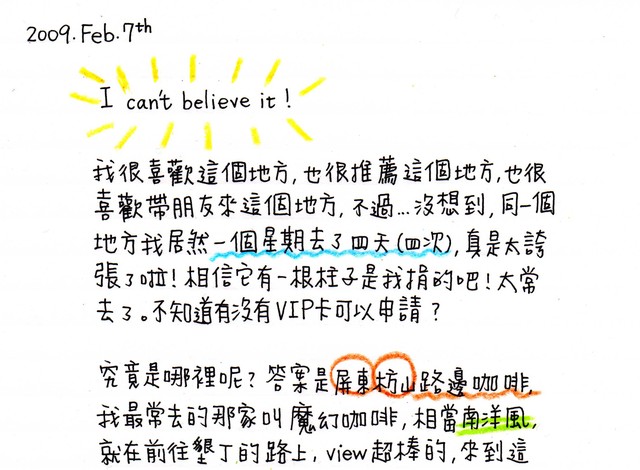 2009.Feb.7th
I can't believe it!
我很喜歡這個地方,也很推薦這個地方,也很
喜歡帶朋友來這個地方,不過...沒想到,同一個
地方我居然一個星期去了四天(四次),真是太誇
張了啦!相信它有一根柱子是我捐的吧!太常
去了。不知道有沒有VIP卡可以申請?
究竟是哪裡呢?答案是屏東枋山路邊咖啡,
我最常去的那家叫魔幻咖啡,相當南洋風,
就在前往墾丁的路上,view超棒的,來到這